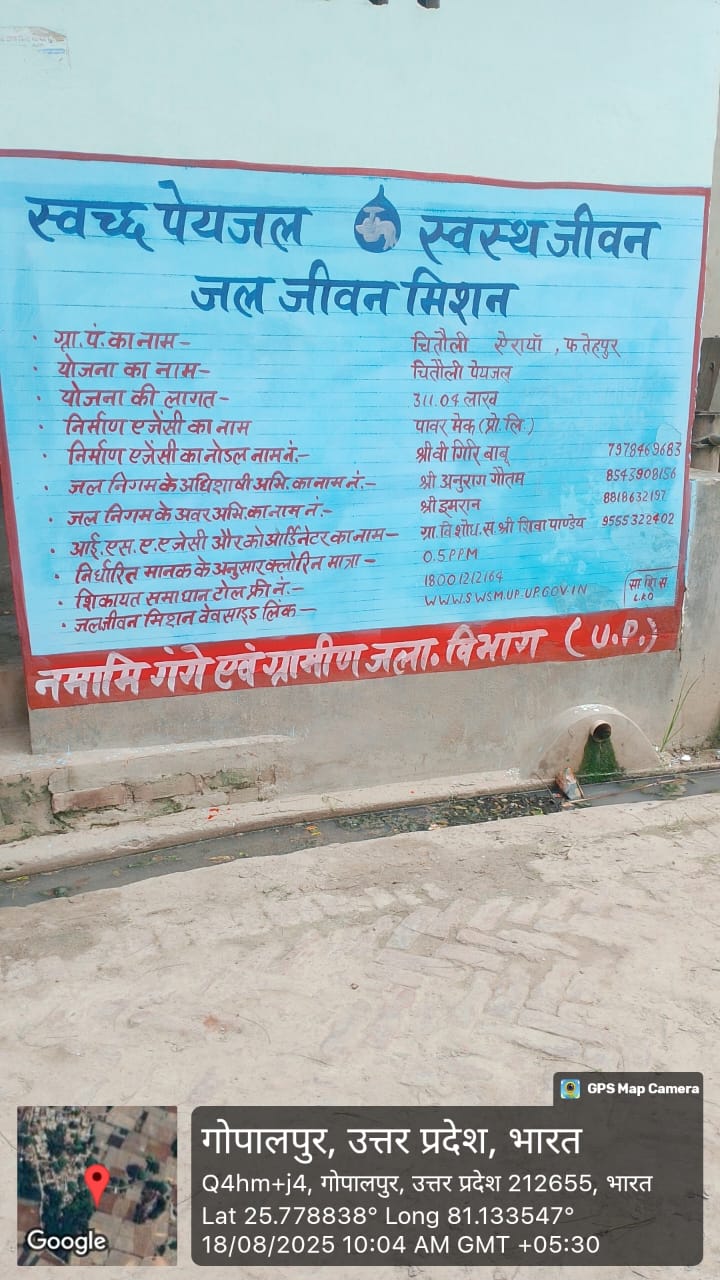 स्वच्छ पेयजल स्वस्थ जीवन
जल जीवन मिशन
· ग्रा.पं.का नाम– चितौली ऐरायाॅ , फतेहपुर
· योजना का नाम– चितौली पेयजल
· योजना की लागत– 311.04 लाख
· निर्माण एजेंसी का नाम पावर मेक (प्रो.लि.)
· निर्माण एजेंसी का नोडल नाम नं.– श्री वी गिरि बाबू 7978469683
· जल निगम के अधिशाषी अभि.का नाम नं.– श्री अनुराग गौतम 8543908156
· जल निगम के अवर अभि.का नाम नं.– श्री इमरान 8818632197
· आई.एस.ए.एजेंसी और कोआर्डिनेटर का नाम– ग्रा.वि.शोध.सं.श्री शिवा पाण्डेय 9555322402
· निर्धारित मानक के अनुसार क्लोरिन मात्रा– 0.5 PPM
· शिकायत समाधान टोल फ्री नं.– 18001212164
· जलजीवन मिशन वेवसाइड लिंक– WWW.SWSM.UP.UP.GOV.IN
LKO
नमामि गंगे एवं ग्रामीण जला. विभाग (U.P.)
GPS Map Camera
गोपालपुर, उत्तर प्रदेश, भारत
Q4hm+j4, गोपालपुर, उत्तर प्रदेश 212655, भारत
Lat 25.778838° Long 81.133547°
18/08/2025 10:04 AM GMT +05:30
Google